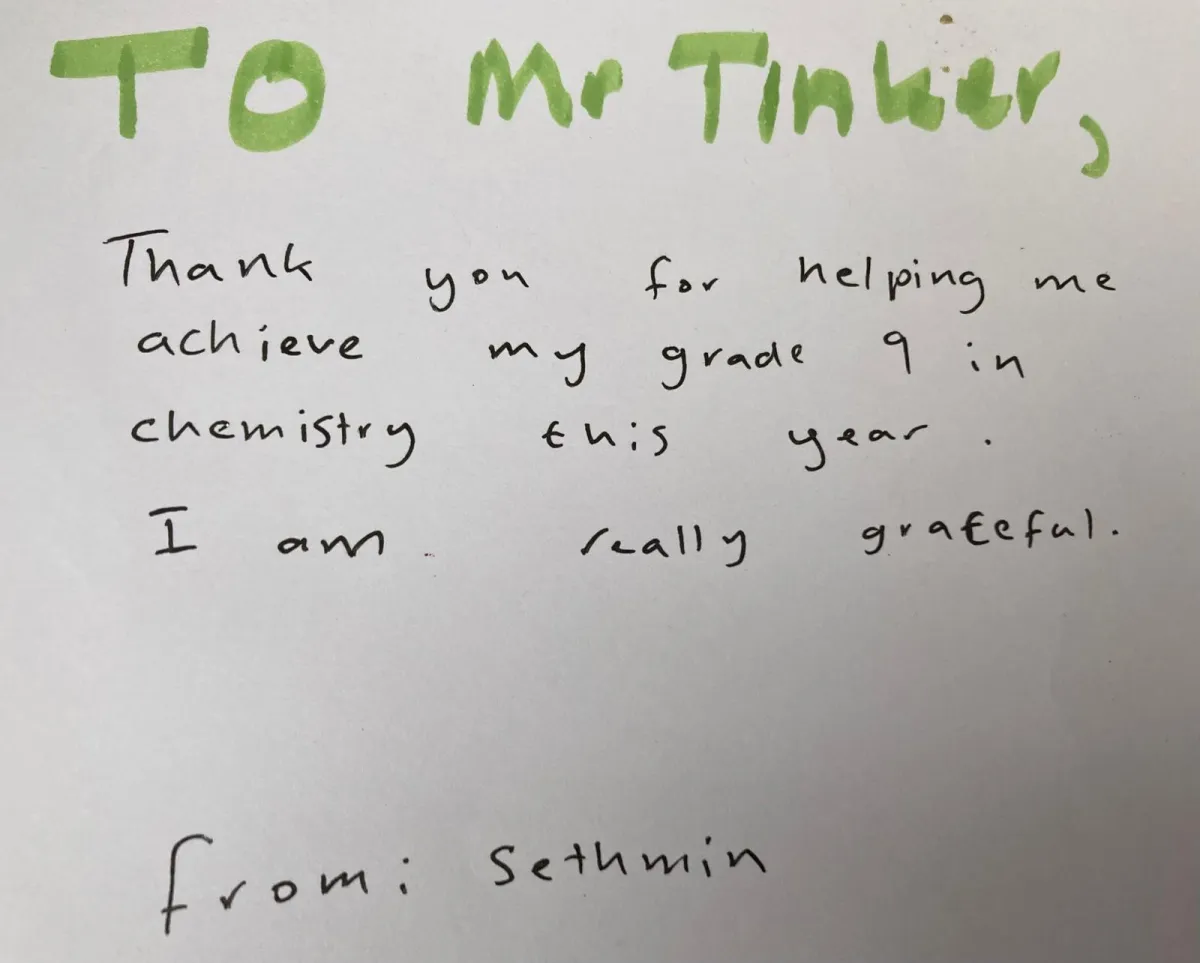 TO Mr Tinker,
Thank you for helping me
achieve my grade 9 in
chemistry this year.
I am really grateful.
from: Sethmin